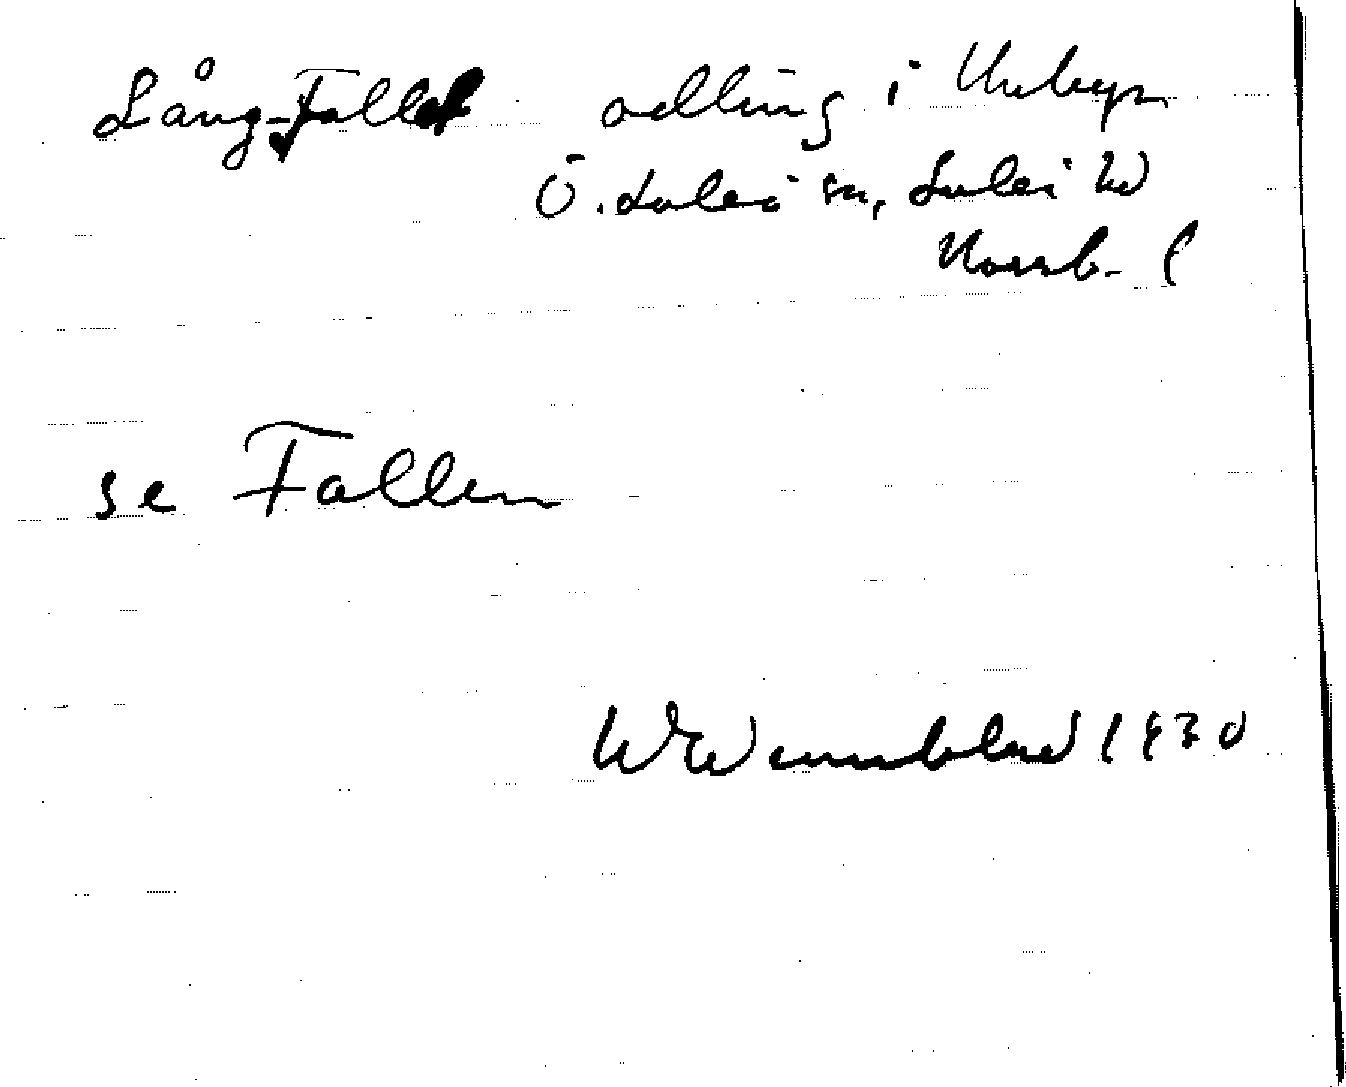 Lång-Fallet odling i Unbyn
Ö. Luleå sn, Luleå
Norrb. l
se Fallen
1930